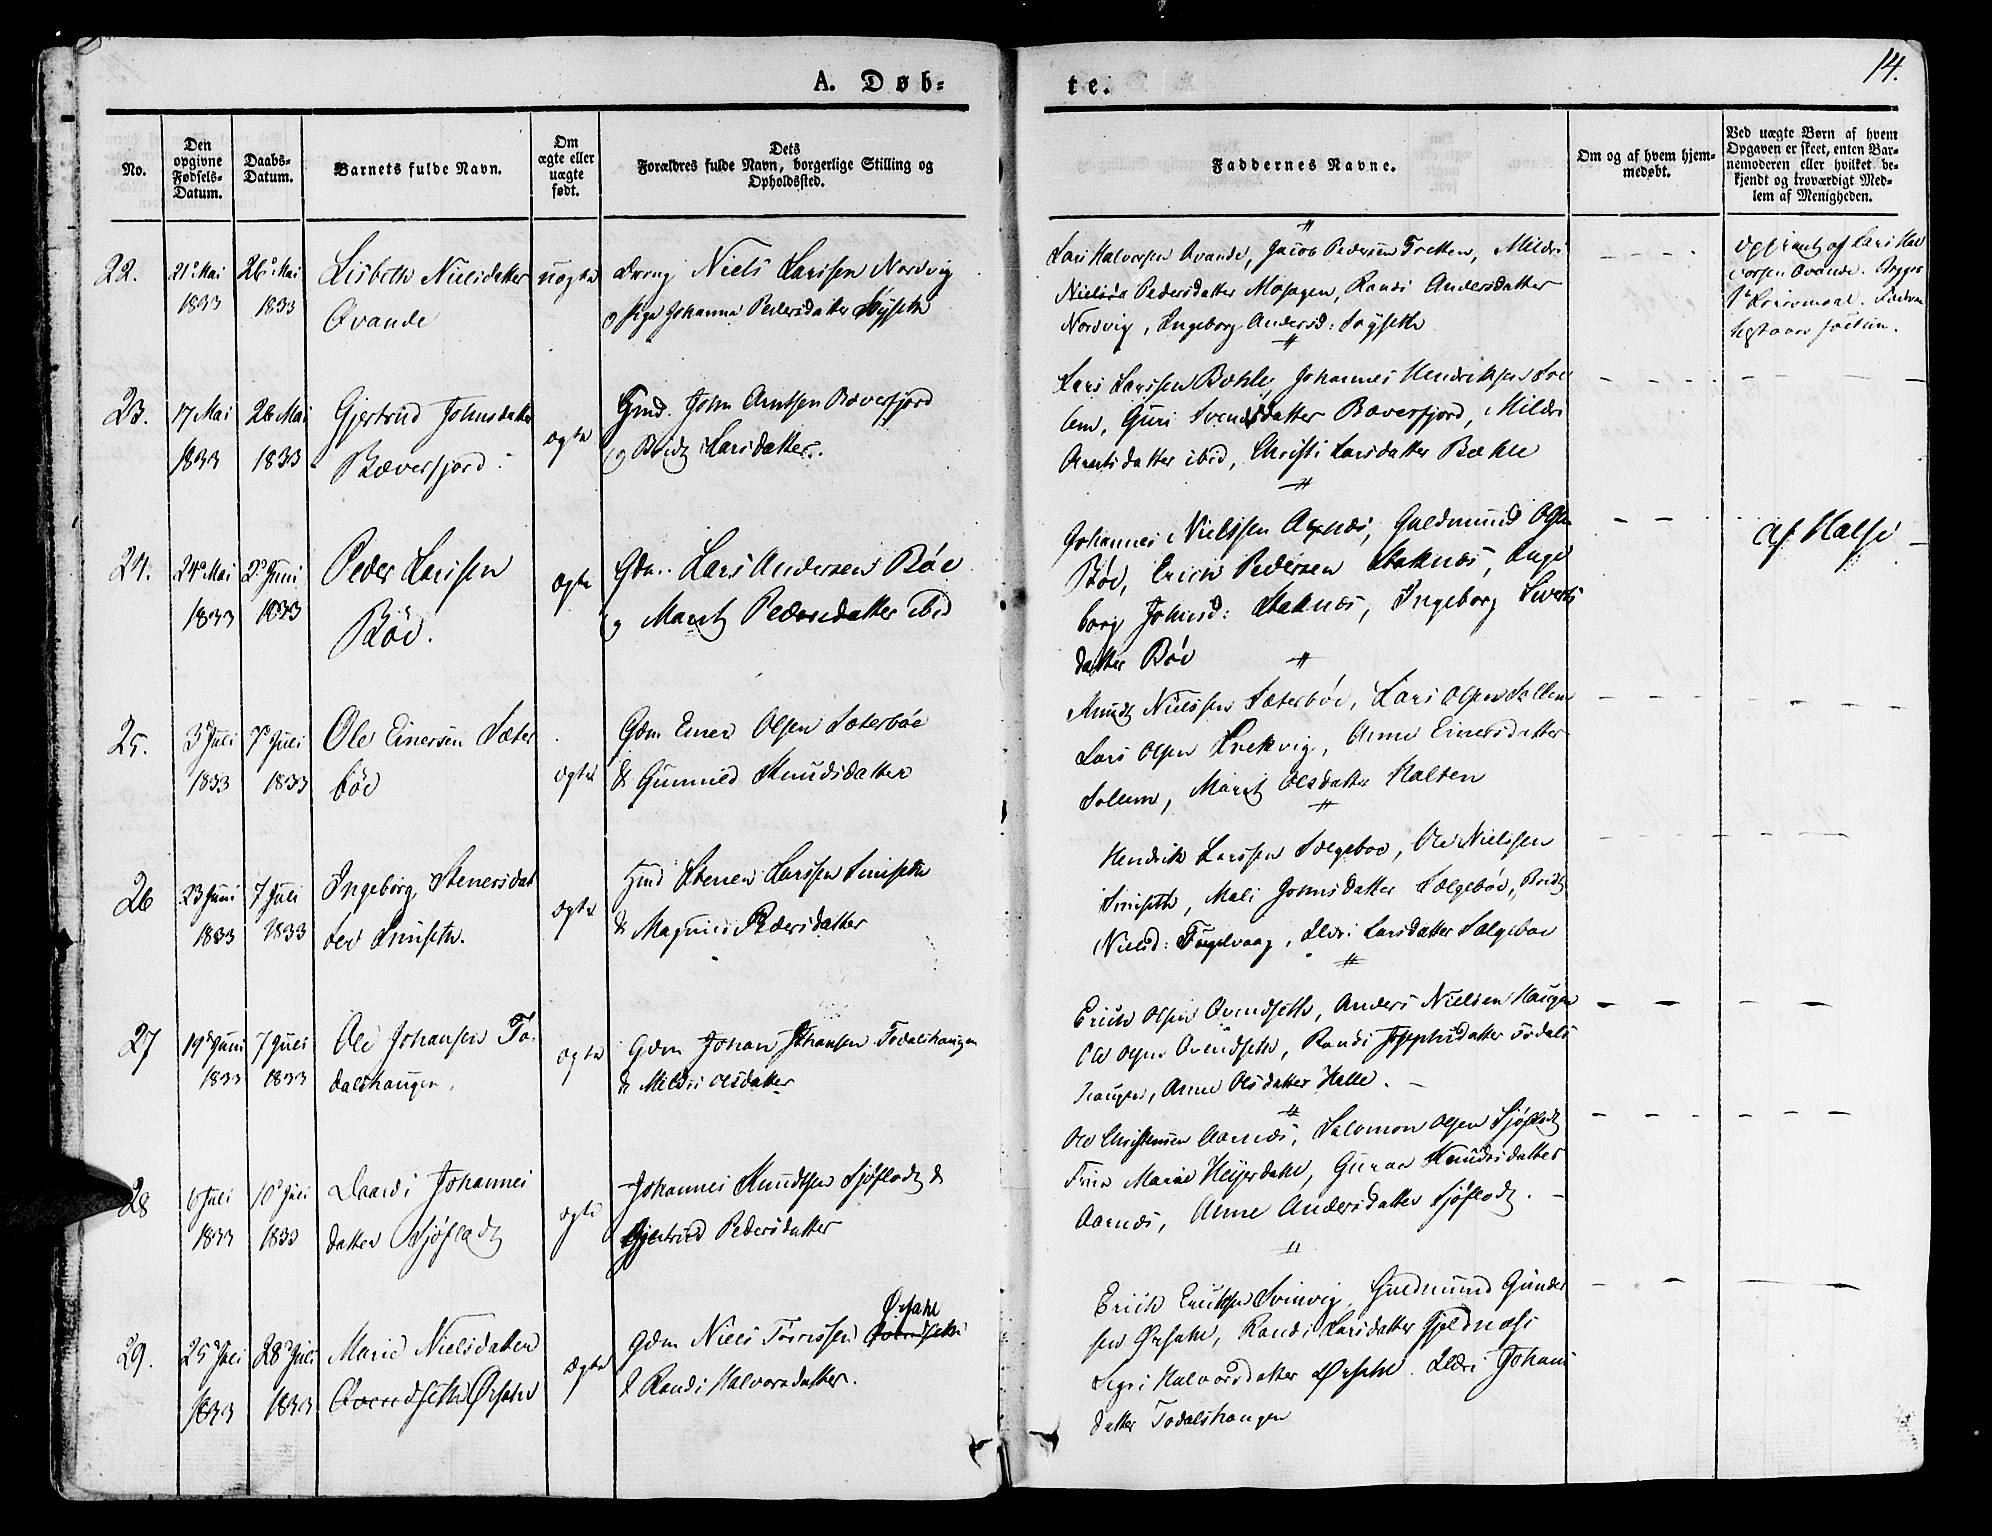 14.
A. Døb-
te.
No.
Den opgivne Fødsels-Datum.
Daabs-Datum.
Barnets fulde Navn.
Om ægte eller uægte født.
Dets
Forældres fulde Navn, borgerlige Stilling og
Opholdssted.
Faddernes Navne.
Om og af hvem hjem-
medøbt.
Ved uægte Børn af hvem
Opgaven er skeet, enten Bar-
nemoderen eller hvilket be-
kjendt og troværdigt Med-
lem af Menigheden.
22.
21de Mai
1833
26de Mai
1833
Lisbeth Nielsdatter
Ovande
uægte
Dreng Niels Larssen Nordvig
og Pige Johanna Pedersdatter
Lars Halvorsen Ovande, Jacob Pedersen Tretten, Mildri
Pedersdatter Mosagen, Randi Andersdatter
Nordvig, Ingeborg Andersd:
af Lars Hal
vorsen Ovande.
23.
17 Mai
1833
26 Mai
1833
Gjertrud Johnsdatter
Bæverfjord
ægte
John Arntsen Bæverfjord
og Larsdatter.
Lars Larssen Bæhle, Johannes Hendriksen
Guri Svendsdatter Bæverfjord, Mildri
Arntsdatter ibid, Christi Larsdatter Bæhle
24.
24de Mai
1833
2de Juni
1833
Peder Larssen
Bøe.
ægte
Gdm. Lars Andersen Bøe
og Marit Pedersdatter ibid
Johannes Nielssen Guldmund Olsen
Bøe, Erich Pedersen Staknæs, Inge
borg Johnsd: Staknæs, Ingeborg Siverts
datter Bøe
af Halse
25.
3de Juli
1833
7de Juli
1833
Ole Einersen Sæter
bøe
ægte
Gdm Einer Olsen Sæterbøe
& Gunnild Knudsdatter
Knud Nielssen Sæterbøe, Lars Olsen Sollem
Lars Olsen Anne Einersdatter
Solem, Marit Olsdatter Halten
26
23 Juni
1833
7 Juli
1833
Ingeborg Stenersdat
ter Siniseth.
ægte
Hmd Stener Larssen Siniseth
& Magnild Pedersdatter
Hendrik Larssen Sælgebøe, Ole Nielssen
Siniseth, Mali Johnsdatter Sælgebøe,
Nielsd: Fuglvaag, Larsdatter Sælgebøe
27
19de Juni
1833
7 Juli
1833
Ole Johansen To-
dalshaugen,
ægte
Gdm Johan Johansen Todalshaugen
& Mildri Olsdatter
Erich Olsen Qvendseth, Anders Nielsen Haugen
Ole Olsen Qvendseth, Randi Josephsdatter Todals
haugen, Anne Olsdatter Halle.
28
6 Juli
1833
10de Juli
1833
Johannes
datter Sjøflodt
ægte
Johannes Knudsen Sjøflodt &
Gjertrud Pedersdatter
Ole Christensen Aarnæs, Salomon Olsen Sjøflodt
Marie Heyerdahl, Guruo Knudsdatter
Aarnæs, Anne Andersdatter Sjøflodt.
29.
25de Juli
1833
28de Juli
1833
Marie Nielsdatter
Qvendseth Ørsahl
ægte
Gdm Niels Tørrissen Qvendseth Ørsahl
& Randi Halvorsdatter.
Erich Erichsen Svinvig, Guldmund Gunder
sen Ørsahl, Randi Larsdatter Gjeldnæs
Segri Halvorsdatter Ørsahl. Johans
datter Todalshaugen